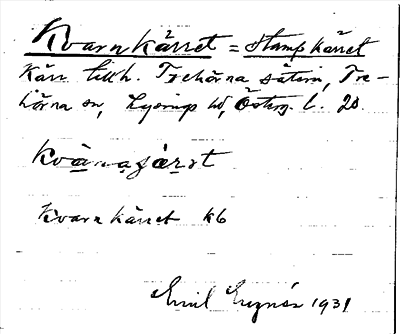 Kvarnkärret = Stampkärret
Kärr tillh. Trehörna säteri, Tre-
hörna sn, Lysings hd, Österg. l. 20.
Kvarnkärret k6
Emil 1931